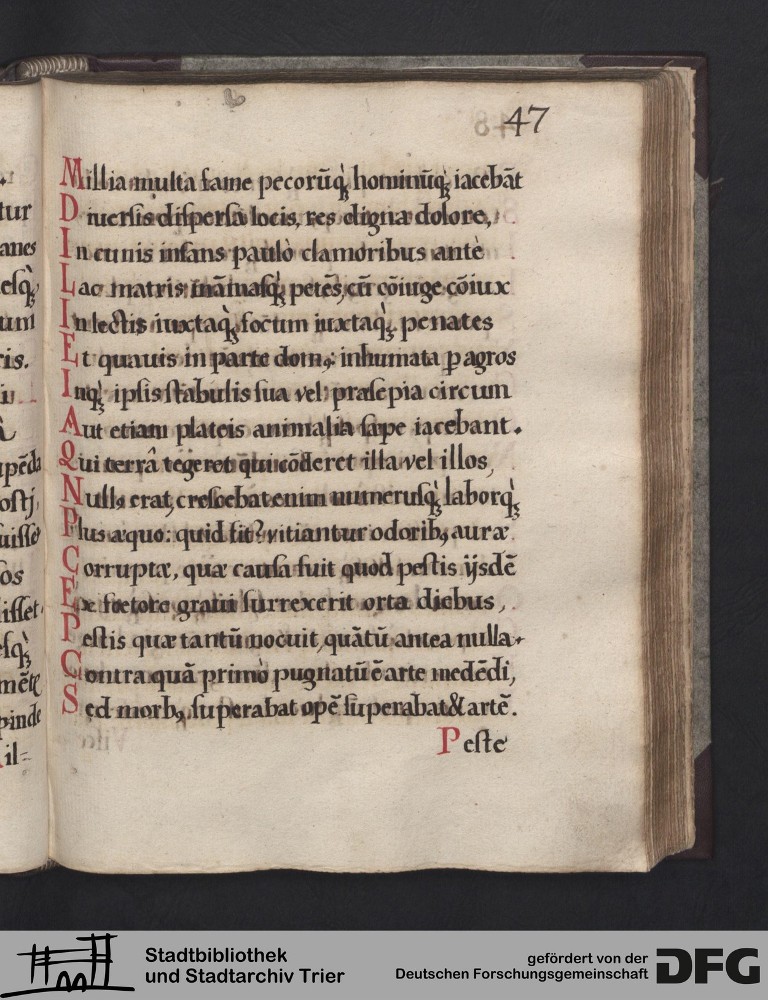 47
Millia multa fame pecorūq̀ꝫ hominūq̀ꝫ iacebāt
Diuersis dispersa locis, res digna dolore,
In cunis infans paulò clamoribus antè
Lac matris petēs, cū cōiuge cōiux
In lectis iuxtaq̀ꝫ focum iuxtaq̀ꝫ penates
Et quauis in parte domꝰ: inhumata ꝑ agros
Inq̀ꝫ ipsis stabulis sua vel præsepia circum
Aut etiam plateis animalia sæpe iacebant.
Qui terrâ tegeret qui cōderet illa vel illos,
Nullꝰ erat, crescebat enim numerusq̀ꝫ laborq̀ꝫ
Plus æquo: quid fit? vitiantur odoribꝰ auræ
Corruptæ, quæ causa fuit quod pestis ijsdē
Ex fœtore graui surrexerit orta diebus,
Pestis quæ tantū nocuit, quātū antea nulla.
Contra quā primò pugnatū ē arte medēdi,
Sed morbꝰ, superabat opē superabat & artē.
Peste
tur
anes
esq̀ꝫ
um
ris.
upēda
ostj
uisse
os
isset
esq̀ꝫ
mētē
pinde
il=
Stadtbibliothek
und Stadtarchiv Trier
gefördert von der
Deutschen Forschungsgemeinschaft
DFG